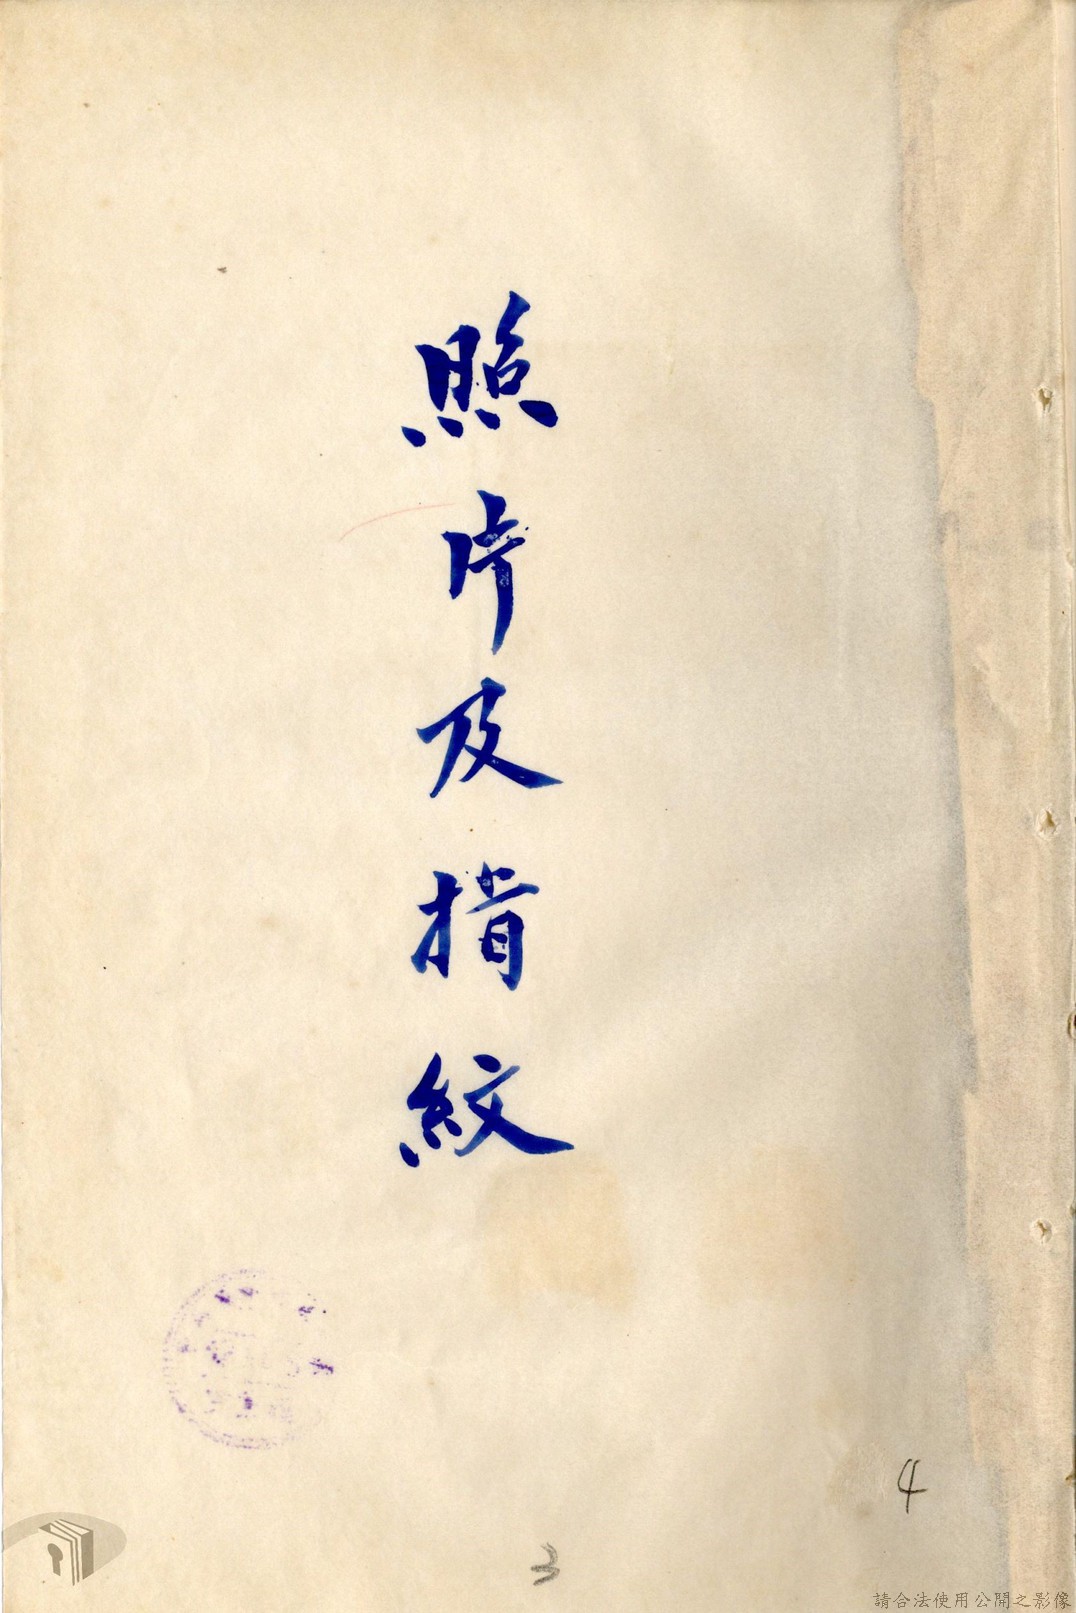 照片及指紋
4
3
請合法使用公開之影像